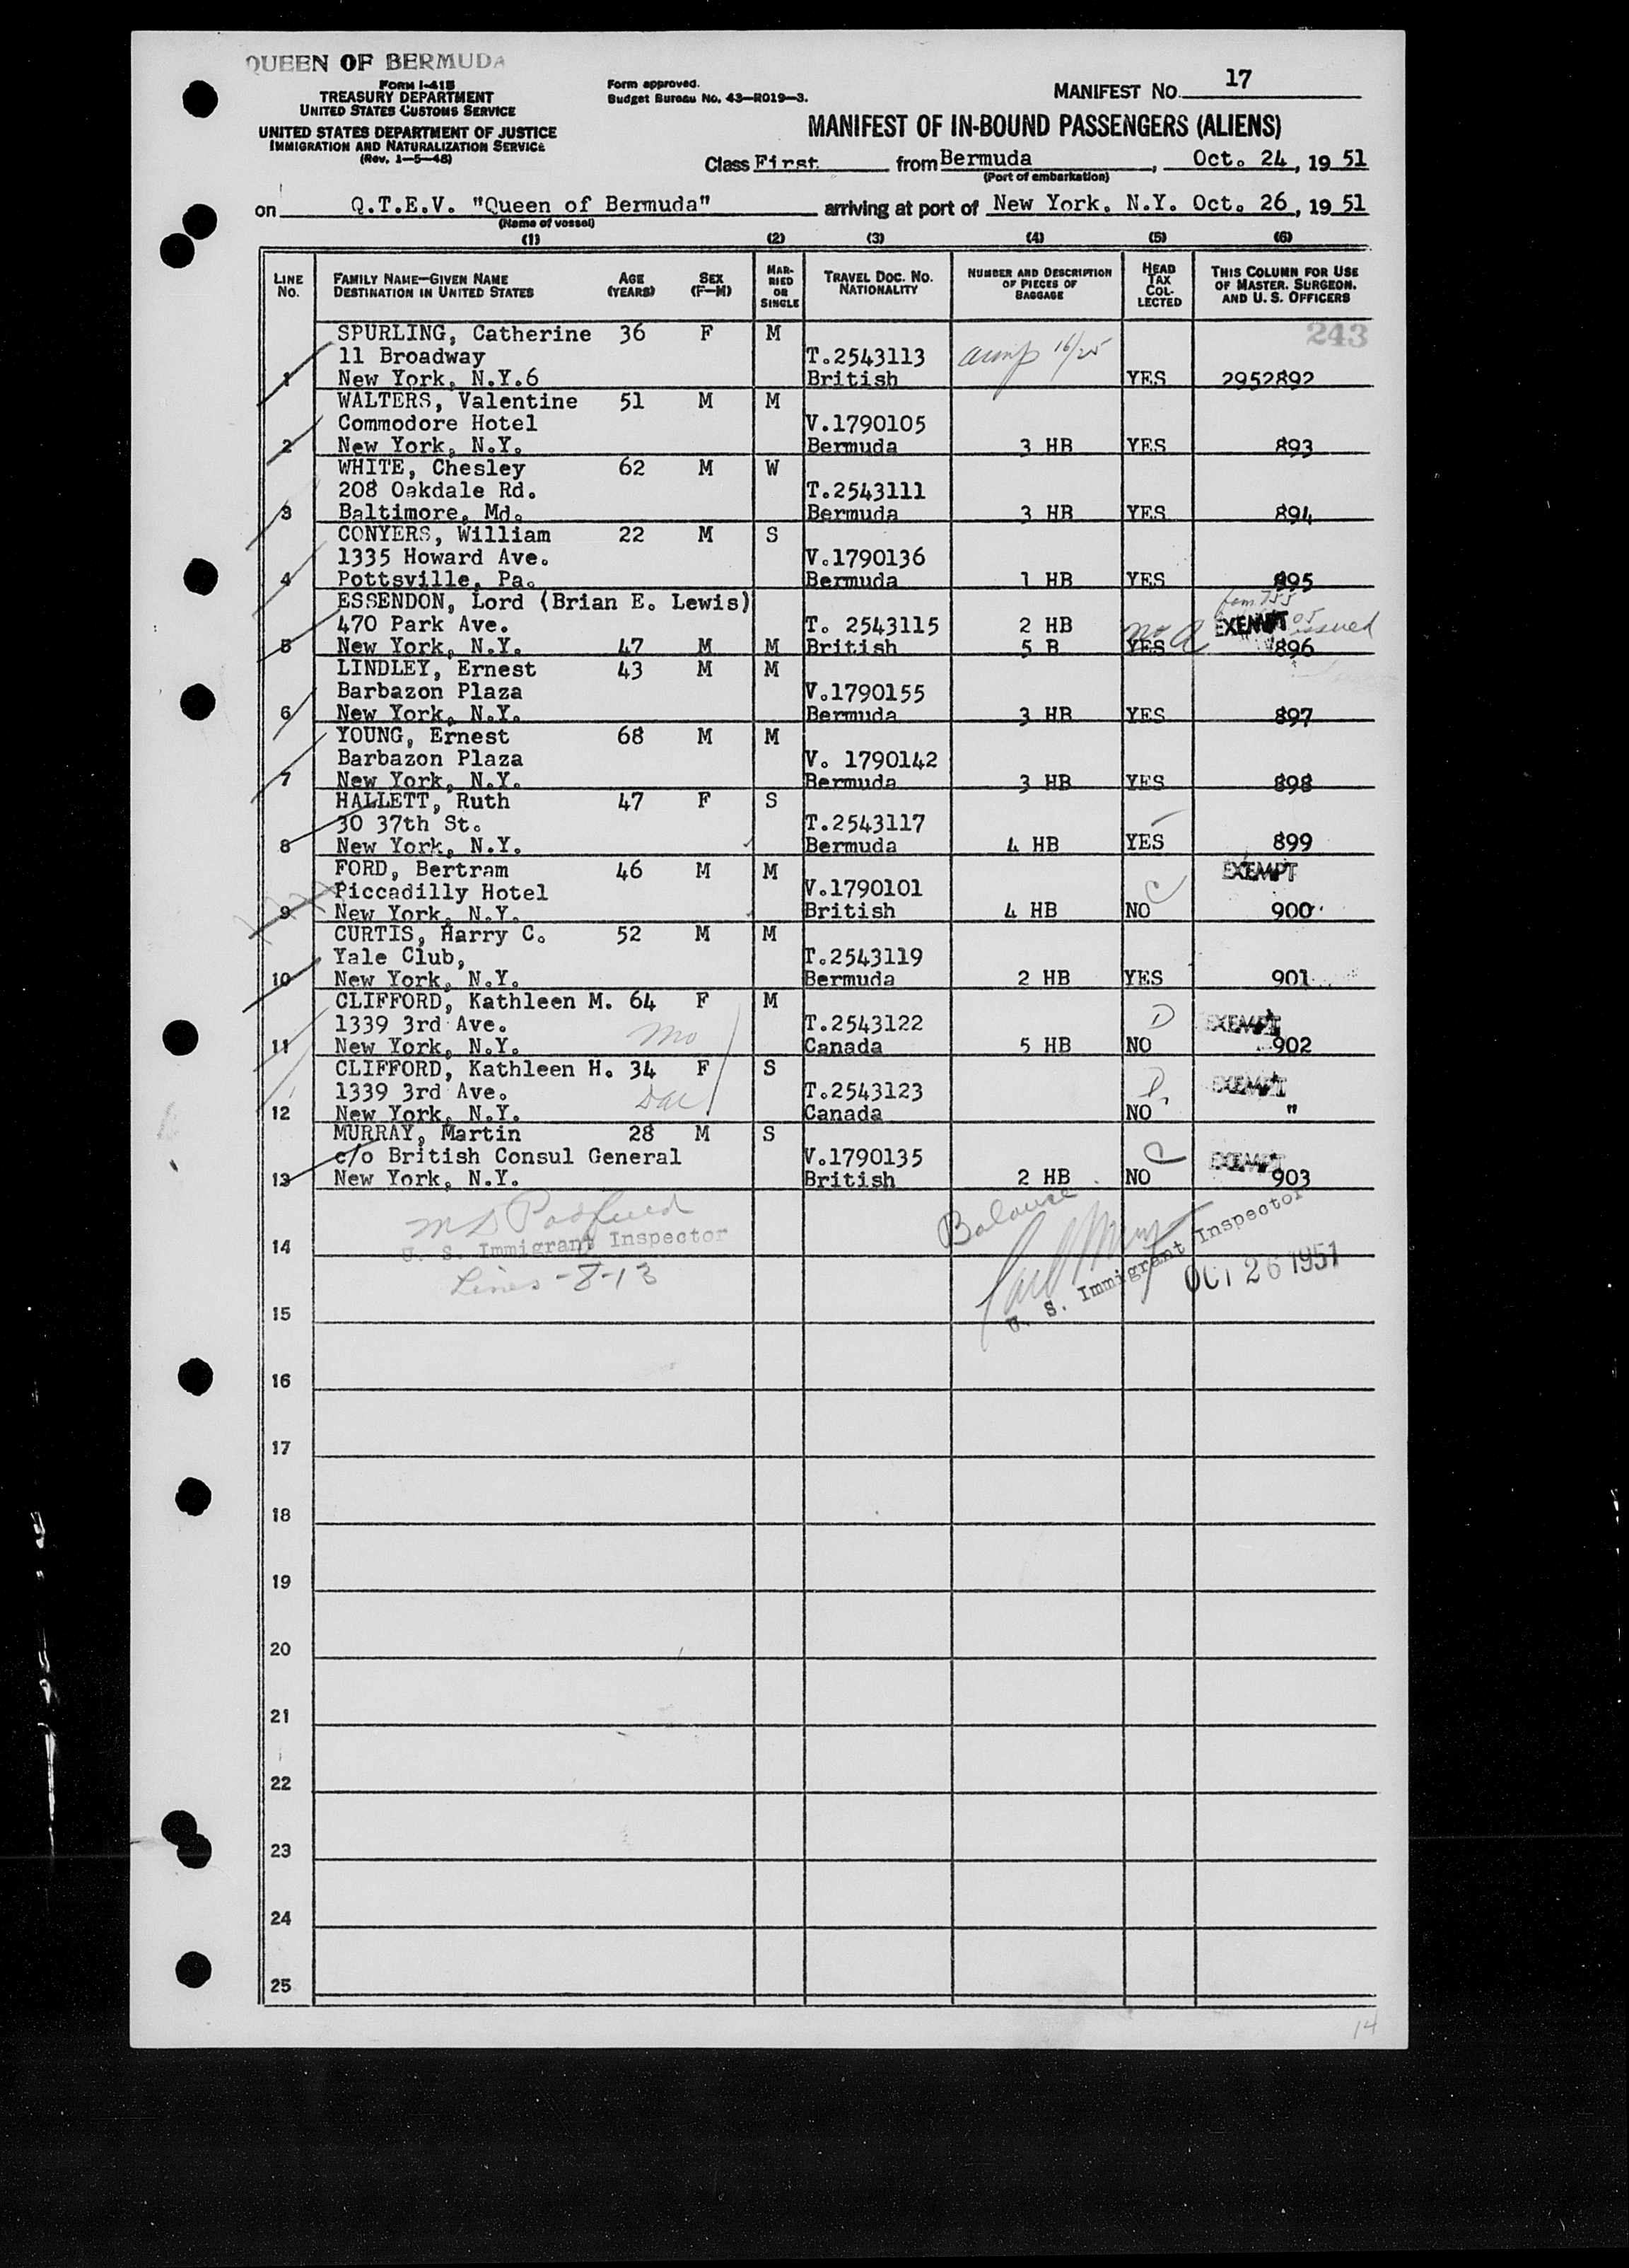 QUEEN OF BERMUDA
FORM I-415
TREASURY DEPARTMENT
UNITED STATES CUSTOMS SERVICE
UNITED STATES DEPARTMENT OF JUSTICE
IMMIGRATION AND NATURALIZATION SERVICE
(Rev. 1-5-48)
Form approved.
Budget Bureau No. 43-R019-3.
MANIFEST NO. 17
MANIFEST OF IN-BOUND PASSENGERS (ALIENS)
Class First from Bermuda, Oct. 24, 19 51
(Port of embarkation)
on Q.T.E.V. "Queen of Bermuda" arriving at port of New York, N.Y. Oct. 26, 19 51
(Name of vessel)
(1) (2) (3) (4) (5) (6)
LINE NO. FAMILY NAME—GIVEN NAME DESTINATION IN UNITED STATES AGE (YEARS) SEX (F—M) MARRIED OR SINGLE TRAVEL DOC. NO. NATIONALITY NUMBER AND DESCRIPTION OF PIECES OF BAGGAGE HEAD TAX COLLECTED THIS COLUMN FOR USE OF MASTER, SURGEON, AND U. S. OFFICERS
243
SPURLING, Catherine 36 F M
11 Broadway T.2543113 16/25
1 New York, N.Y.6 British YES 2952892
WALTERS, Valentine 51 M M
Commodore Hotel V.1790105
2 New York, N.Y. Bermuda 3 HB YES 893
WHITE, Chesley 62 M W
208 Oakdale Rd. T.2543111
3 Baltimore, Md. Bermuda 3 HB YES 894
CONYERS, William 22 M S
1335 Howard Ave. V.1790136
4 Pottsville, Pa. Bermuda 1 HB YES 895
ESSENDON, Lord (Brian E. Lewis)
470 Park Ave. T. 2543115 2 HB no EXEMPT issued
5 New York, N.Y. 47 M M British 5 B YES 896
LINDLEY, Ernest 43 M M
Barbazon Plaza V.1790155
6 New York, N.Y. Bermuda 3 HB YES 897
YOUNG, Ernest 68 M M
Barbazon Plaza V. 1790142
7 New York, N.Y. Bermuda 3 HB YES 898
HALLETT, Ruth 47 F S
30 37th St. T.2543117
8 New York, N.Y. Bermuda 4 HB YES 899
FORD, Bertram 46 M M EXEMPT
Piccadilly Hotel V.1790101 C
9 New York, N.Y. British 4 HB NO 900
CURTIS, Harry C. 52 M M
Yale Club, T.2543119
10 New York, N.Y. Bermuda 2 HB YES 901
CLIFFORD, Kathleen M. 64 F M
1339 3rd Ave. mo T.2543122 D EXEMPT
11 New York, N.Y. Canada 5 HB NO 902
CLIFFORD, Kathleen H. 34 F S
1339 3rd Ave. dau T.2543123 D. EXEMPT
12 New York, N.Y. Canada NO "
MURRAY, Martin 28 M S
c/o British Consul General V.1790135 C EXEMPT
13 New York, N.Y. British 2 HB NO 903
Balance
U. S. Immigrant Inspector
Lines - 8-13
U. S. Immigrant Inspector
OCT 26 1951
14
15
16
17
18
19
20
21
22
23
24
25
14